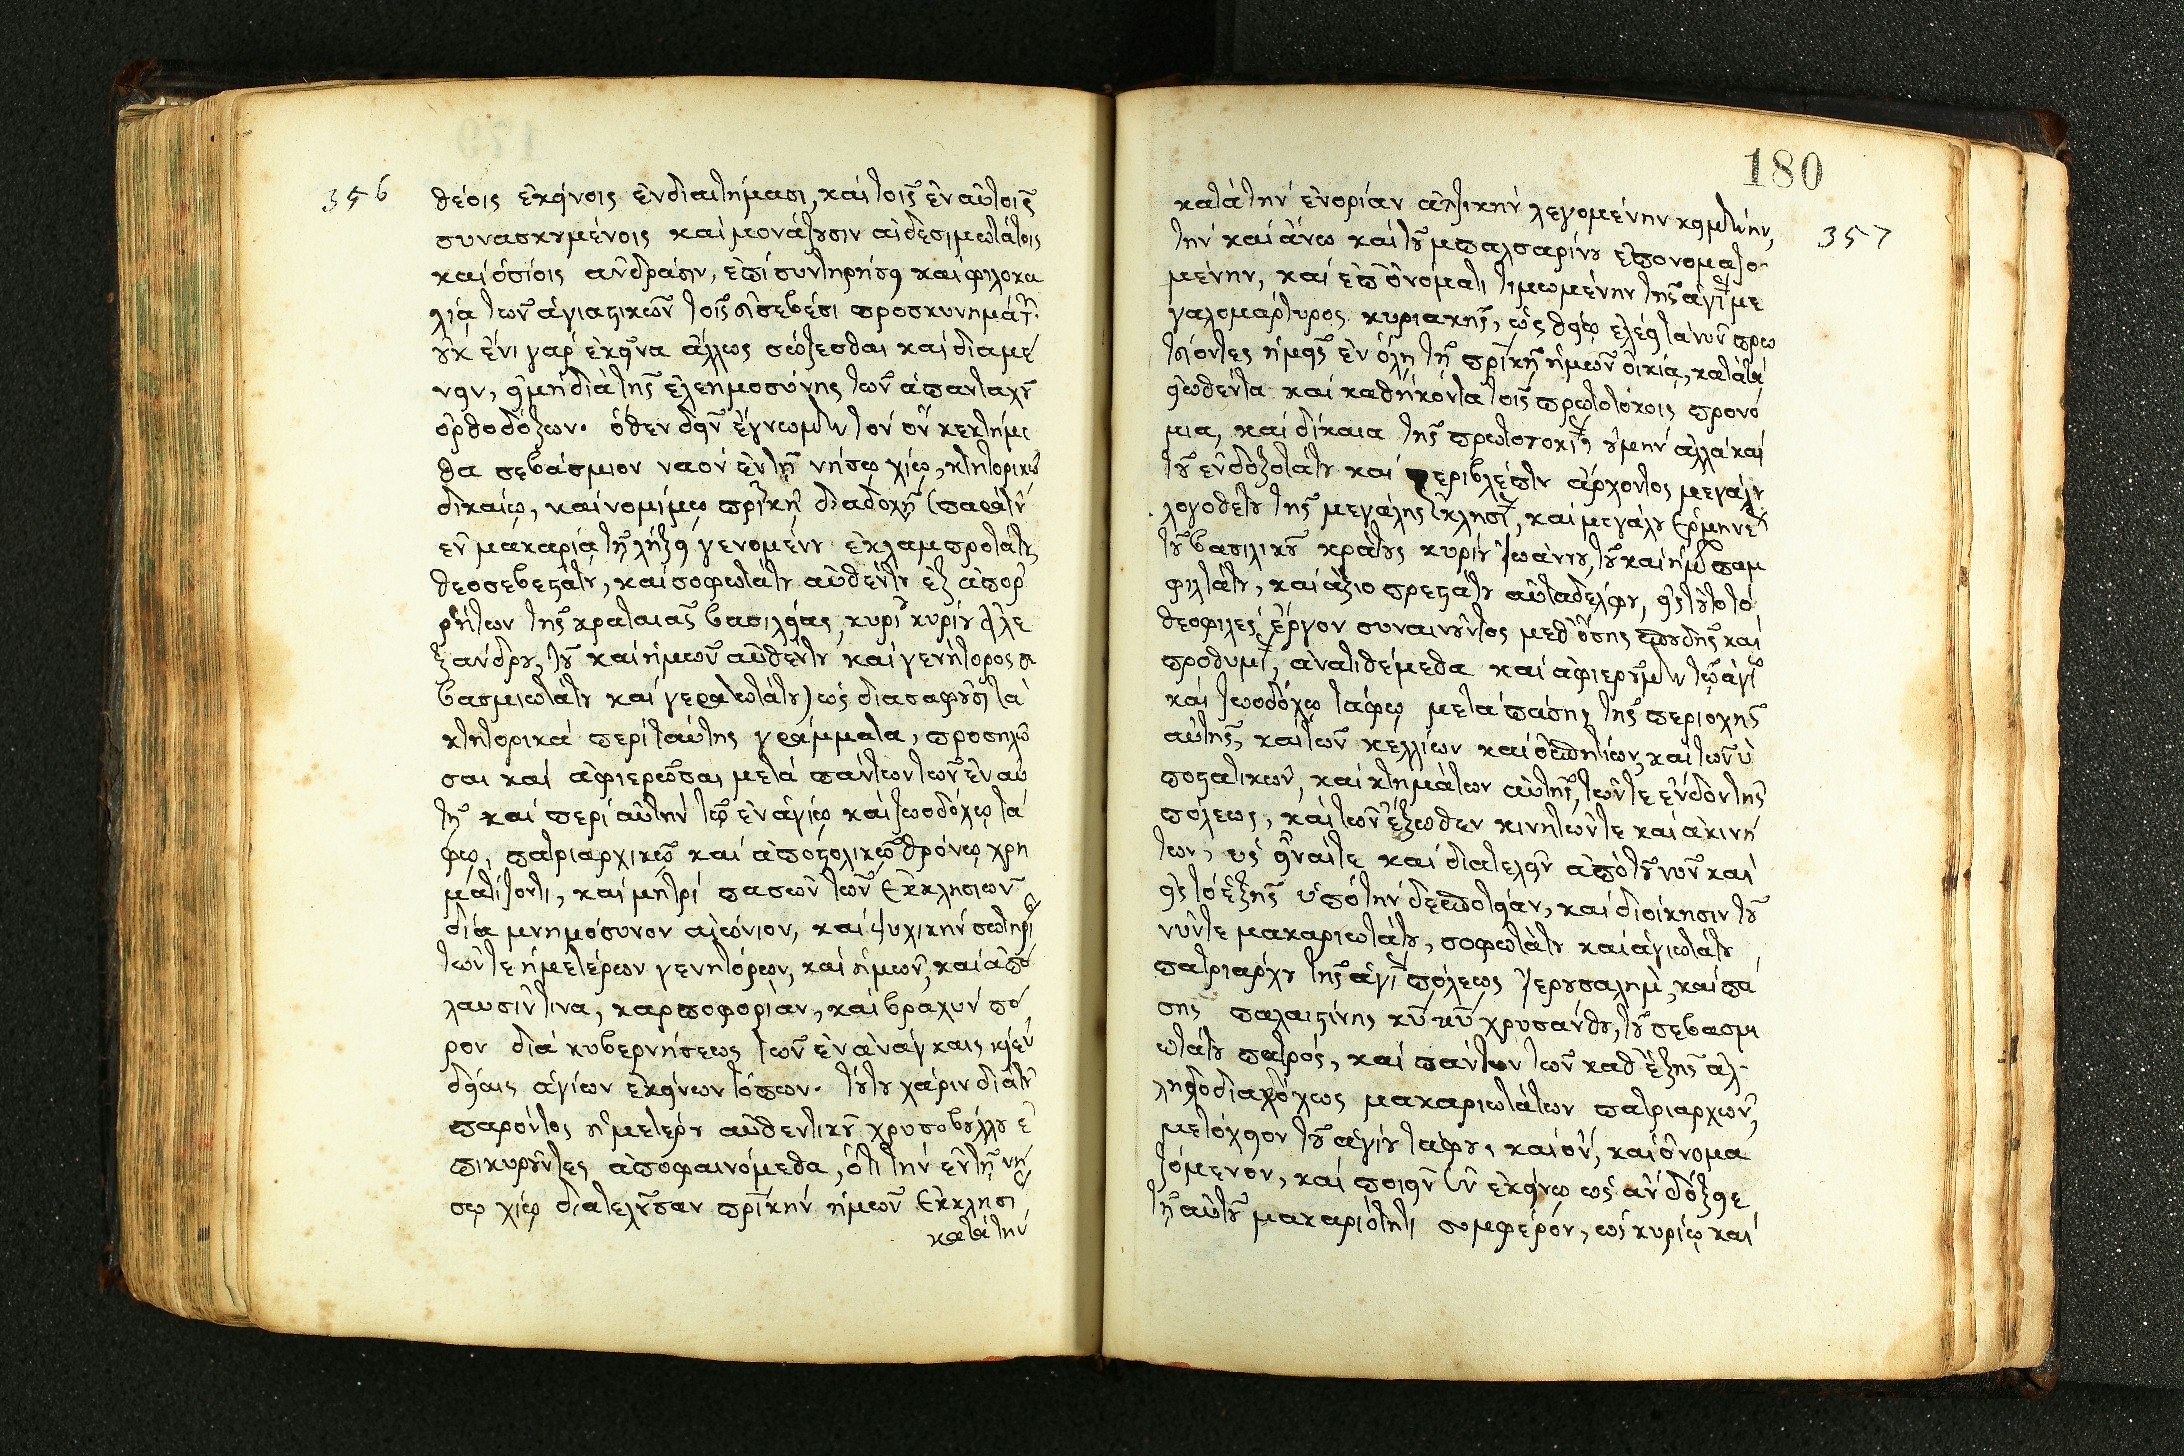 356
θείοις ἐκείνοις ἐνδιαιτήμασι, καὶ τοῖς ἐν αὐτοῖς
συνασκουμένοις καὶ μονάζουσιν αἰδεσιμωτάτοις
καὶ ὁσίοις ἀνδράσιν, ἐπὶ συντηρήσει καὶ φιλοκα
λίᾳ τῶν ἁγιαστικῶν τοῖς εὐσεβέσι προσκυνημάτ.
οὐκ ἔνι γὰρ ἐκεῖνα ἄλλως σώζεσθαι καὶ διαμέ
νειν, εἰ μὴ διὰ τῆς ἐλεημοσύνης τῶν ἁπανταχοῦ
ὀρθοδόξων. ὅθεν δεῖν ἔγνωμεν τὸν ὃν κεκτήμε
θα σεβάσμιον ναὸν ἐν τῇ νήσῳ χίῳ, κτητορικῷ
δικαίῳ, καὶ νομίμῳ πρικῇ διαδοχῇ (παρὰ τοῦ
ἐν μακαρίᾳ τῇ λήξει γενομένου ἐκλαμπροτάτου,
θεοσεβεστάτου, καὶ σοφωτάτου αὐθέντου ἐξ ἀπορ
ρήτων τῆς κραταιᾶς βασιλείας, κυρί κυρίου ἀλε
ξάνδρου, τοῦ καὶ ἡμῶν αὐθέντου καὶ γενήτορος σε
βασμιωτάτου καὶ γεραιωτάτου) ὡς διασαφοῦσι τὰ
κτητορικὰ περὶ ταύτης γράμματα, προσηλῶ
σαι καὶ ἀφιερῶσαι μετὰ πάντων τῶν ἐν αὐ
τῇ καὶ περὶ αὐτὴν τῷ ἐν ἁγίῳ καὶ ζωοδόχῳ τά
φῳ, πατριαρχικῷ καὶ ἀποστολικῷ θρόνῳ χρη
ματίζοντι, καὶ μητρὶ πασῶν τῶν ἐκκλησιῶν
διὰ μνημόσυνον αἰώνιον, καὶ ψυχικὴν σωτηρί
τῶν τε ἡμετέρων γενητόρων, καὶ ἡμῶν, καὶ ἀπό
λαυσίν τινα, καρποφορίαν, καὶ βραχὺν πό
ρον διὰ κυβερνήσεως τῶν ἐν ἀνάγκαις κ ἐν
δείαις ἁγίων ἐκείνων τόπων. τούτου χάριν διὰ τοῦ
παρόντος ἡμετέρου αὐθεντικοῦ χρυσοβούλλου ἐ
πικυροῦντες ἀποφαινόμεθα, ὅτι τὴν ἐν τῇ νή
σῳ χίῳ διατελοῦσαν πρικὴν ἡμῶν ἐκκλησί
κατὰ τὴν
180
357
κατὰ τὴν ἐνορίαν λεγομένην
τὴν καὶ ἄνω καὶ τοῦ μπαλσαρίνου ἐπονομαζο
μένην, καὶ ἐπ ὀνόματι τιμωμένην τῆς ἁγί με
γαλομάρτυρος κυριακῆς, ὡς θείῳ ἐλέει τανῦν πρω
τεύοντες ἡμεῖς ἐν ὅλῃ τῇ πρικῇ ἡμῶν οἰκίᾳ, κατὰ τὰ
εἰωθέντα καὶ καθήκοντα τοῖς πρωτοτόκοις προνό
μια, καὶ δίκαια τῆς πρωτοτοκί, οὐ μὴν ἀλλὰ καὶ
τοῦ ἐνδοξοτάτου καὶ περιβλέπτου ἄρχοντος μεγάλου
λογοθέτου τῆς μεγάλης ἐκκλησί, καὶ μεγάλου ἑρμηνέ
τοῦ βασιλικοῦ κράτους κυρίου ἰωάννου, τοῦ καὶ ἡμῶν παμ
φιλτάτου, καὶ ἀξιοπρεπεστάτου αὐταδέλφου, εἰς τοῦτο τὸ
θεοφιλὲς ἔργον συναινοῦντος μεθ ὅσης σπουδῆς καὶ
προθυμί, ἀνατιθέμεθα καὶ ἀφιεροῦμεν τῷ ἁγί
καὶ ζωοδόχῳ τάφῳ μετὰ πάσης τῆς περιοχῆς
αὐτῆς, καὶ τῶν κελλίων καὶ ὁσπητίων, καὶ τῶν ὑ
ποστατικῶν, καὶ κτημάτων αὐτῆς, τῶν τε ἔνδον τῆς
πόλεως, καὶ τῶν ἔξωθεν κινητῶν τε καὶ ἀκινή
των, ὡς εἶναί τε καὶ διατελεῖν ἀπὸ τοῦ νῦν καὶ
εἰς τὸ ἑξῆς ὑπὸ τὴν δεσποτείαν, καὶ διοίκησιν τοῦ
νῦν τε μακαριωτάτου, σοφωτάτου καὶ ἁγιωτάτου
πατριάρχου τῆς ἁγί πόλεως ἱερουσαλὴμ, καὶ πά
σης παλαιστίνης κυ κυ χρυσάνθου, τοῦ σεβασμι
ωτάτου πατρός, καὶ πάντων τῶν καθ ἑξῆς ἀλ
ληλοδιαδόχως μακαριωτάτων πατριαρχῶν,
μετόχιον τοῦ ἁγίου τάφου, καὶ ὂν, καὶ ὀνομα
ζόμενον, καὶ ποιεῖν ἐν ἐκείνῳ ὡς ἂν δόξειε
τῇ αὐτοῦ μακαριότητι συμφέρον, ὡς κυρίῳ καὶ